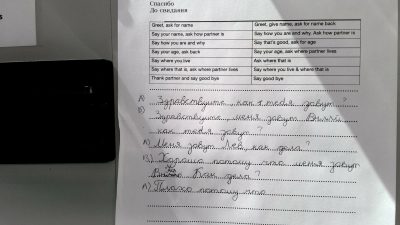 Спасибо
До свидания
Greet, ask for name Greet, give name, ask for name back
Say your name, ask how partner is Say how you are and why. Ask how partner is
Say how you are and why Say that's good, ask for age
Say your age, ask back Say your age, ask where partner lives
Say where you live Ask where that is
Say where that is, ask where partner lives Say where you live & where that is
Thank partner and say good bye Say good bye
A) Здравствуите, как тебя завут?
B) Здравствуите меня завут
как тебя завут?
A) Меня завут Лей, как дила?
B) Харашо потому что меня завут
Как дила?
A) Плохо потому что